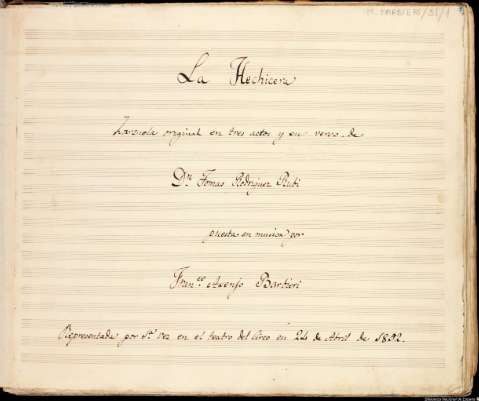 M. BARBIERI/31/1
La Hechicera
Zarzuela original en tres actos y en verso de
Dn. Tomas Rodriguez Rubi
puesta en musica por
Franco. Asenjo Barbieri
Representada por 1a. vez en el teatro del Circo en 24 de Abril de 1852.
Biblioteca Nacional de España